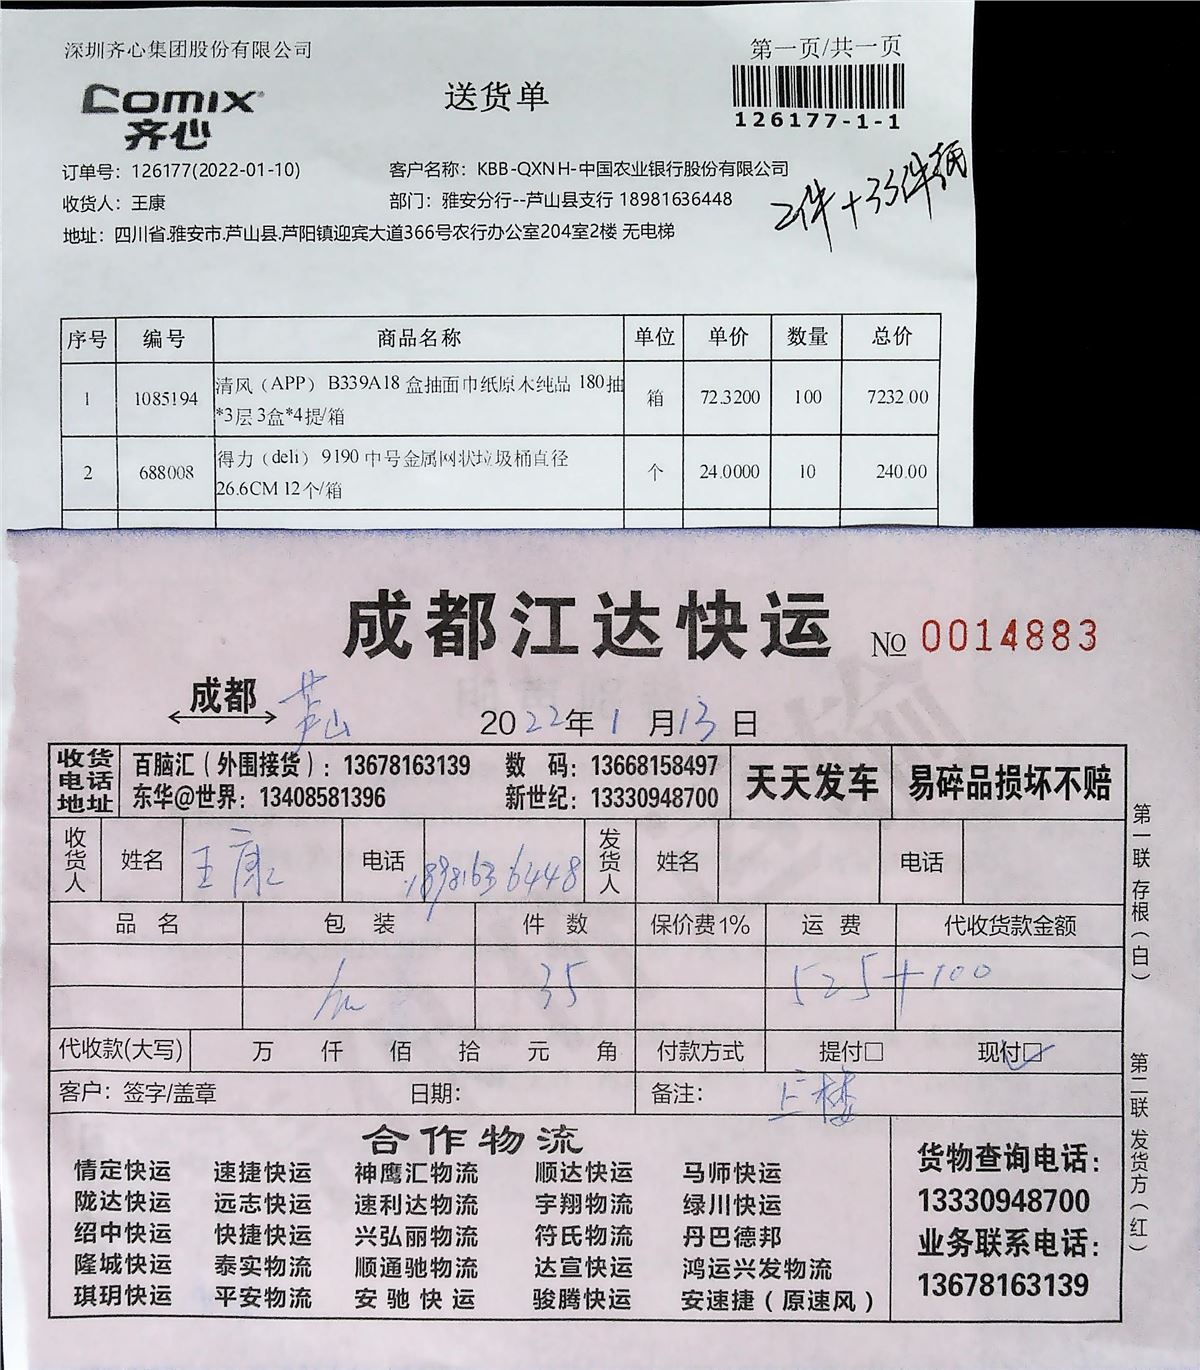 深圳齐心集团股份有限公司
第一页/共一页
Comix
齐心
送货单
126177-1-1
订单号：126177(2022-01-10)
客户名称：KBB-QXNH-中国农业银行股份有限公司
收货人：王康
部门：雅安分行--芦山县支行 18981636448
地址：四川省.雅安市.芦山县.芦阳镇迎宾大道366号农行办公室204室2楼 无电梯
2件+33件
序号 编号 商品名称 单位 单价 数量 总价
1 1085194 清风（APP）B339A18 盒抽面巾纸原木纯品 180抽 箱 72.3200 100 7232.00
*3层 3盒*4提/箱
2 688008 得力（deli）9190 中号金属网状垃圾桶直径 个 24.0000 10 240.00
26.6CM 12个/箱
成都江达快运
No 0014883
成都 芦山
2022年1月13日
收货电话地址
百脑汇（外围接货）：13678163139 数 码：13668158497
东华@世界：13408581396 新世纪：13330948700
天天发车
易碎品损坏不赔
收货人 姓名 王康 电话 18981636448 发货人 姓名 电话
品名 包装 件数 保价费1% 运费 代收货款金额
35 525+100
代收款(大写) 万 仟 佰 拾 元 角 付款方式 提付□ 现付□
客户：签字/盖章 日期： 备注： 上楼
合作物流
情定快运 速捷快运 神鹰汇物流 顺达快运 马师快运
陇达快运 远志快运 速利达物流 宇翔物流 绿川快运
绍中快运 快捷快运 兴弘丽物流 符氏物流 丹巴德邦
隆城快运 泰实物流 顺通驰物流 达宣快运 鸿运兴发物流
琪玥快运 平安物流 安驰快运 骏腾快运 安速捷（原速风）
货物查询电话：
13330948700
业务联系电话：
13678163139
第一联 存根（白）
第二联 发货方（红）